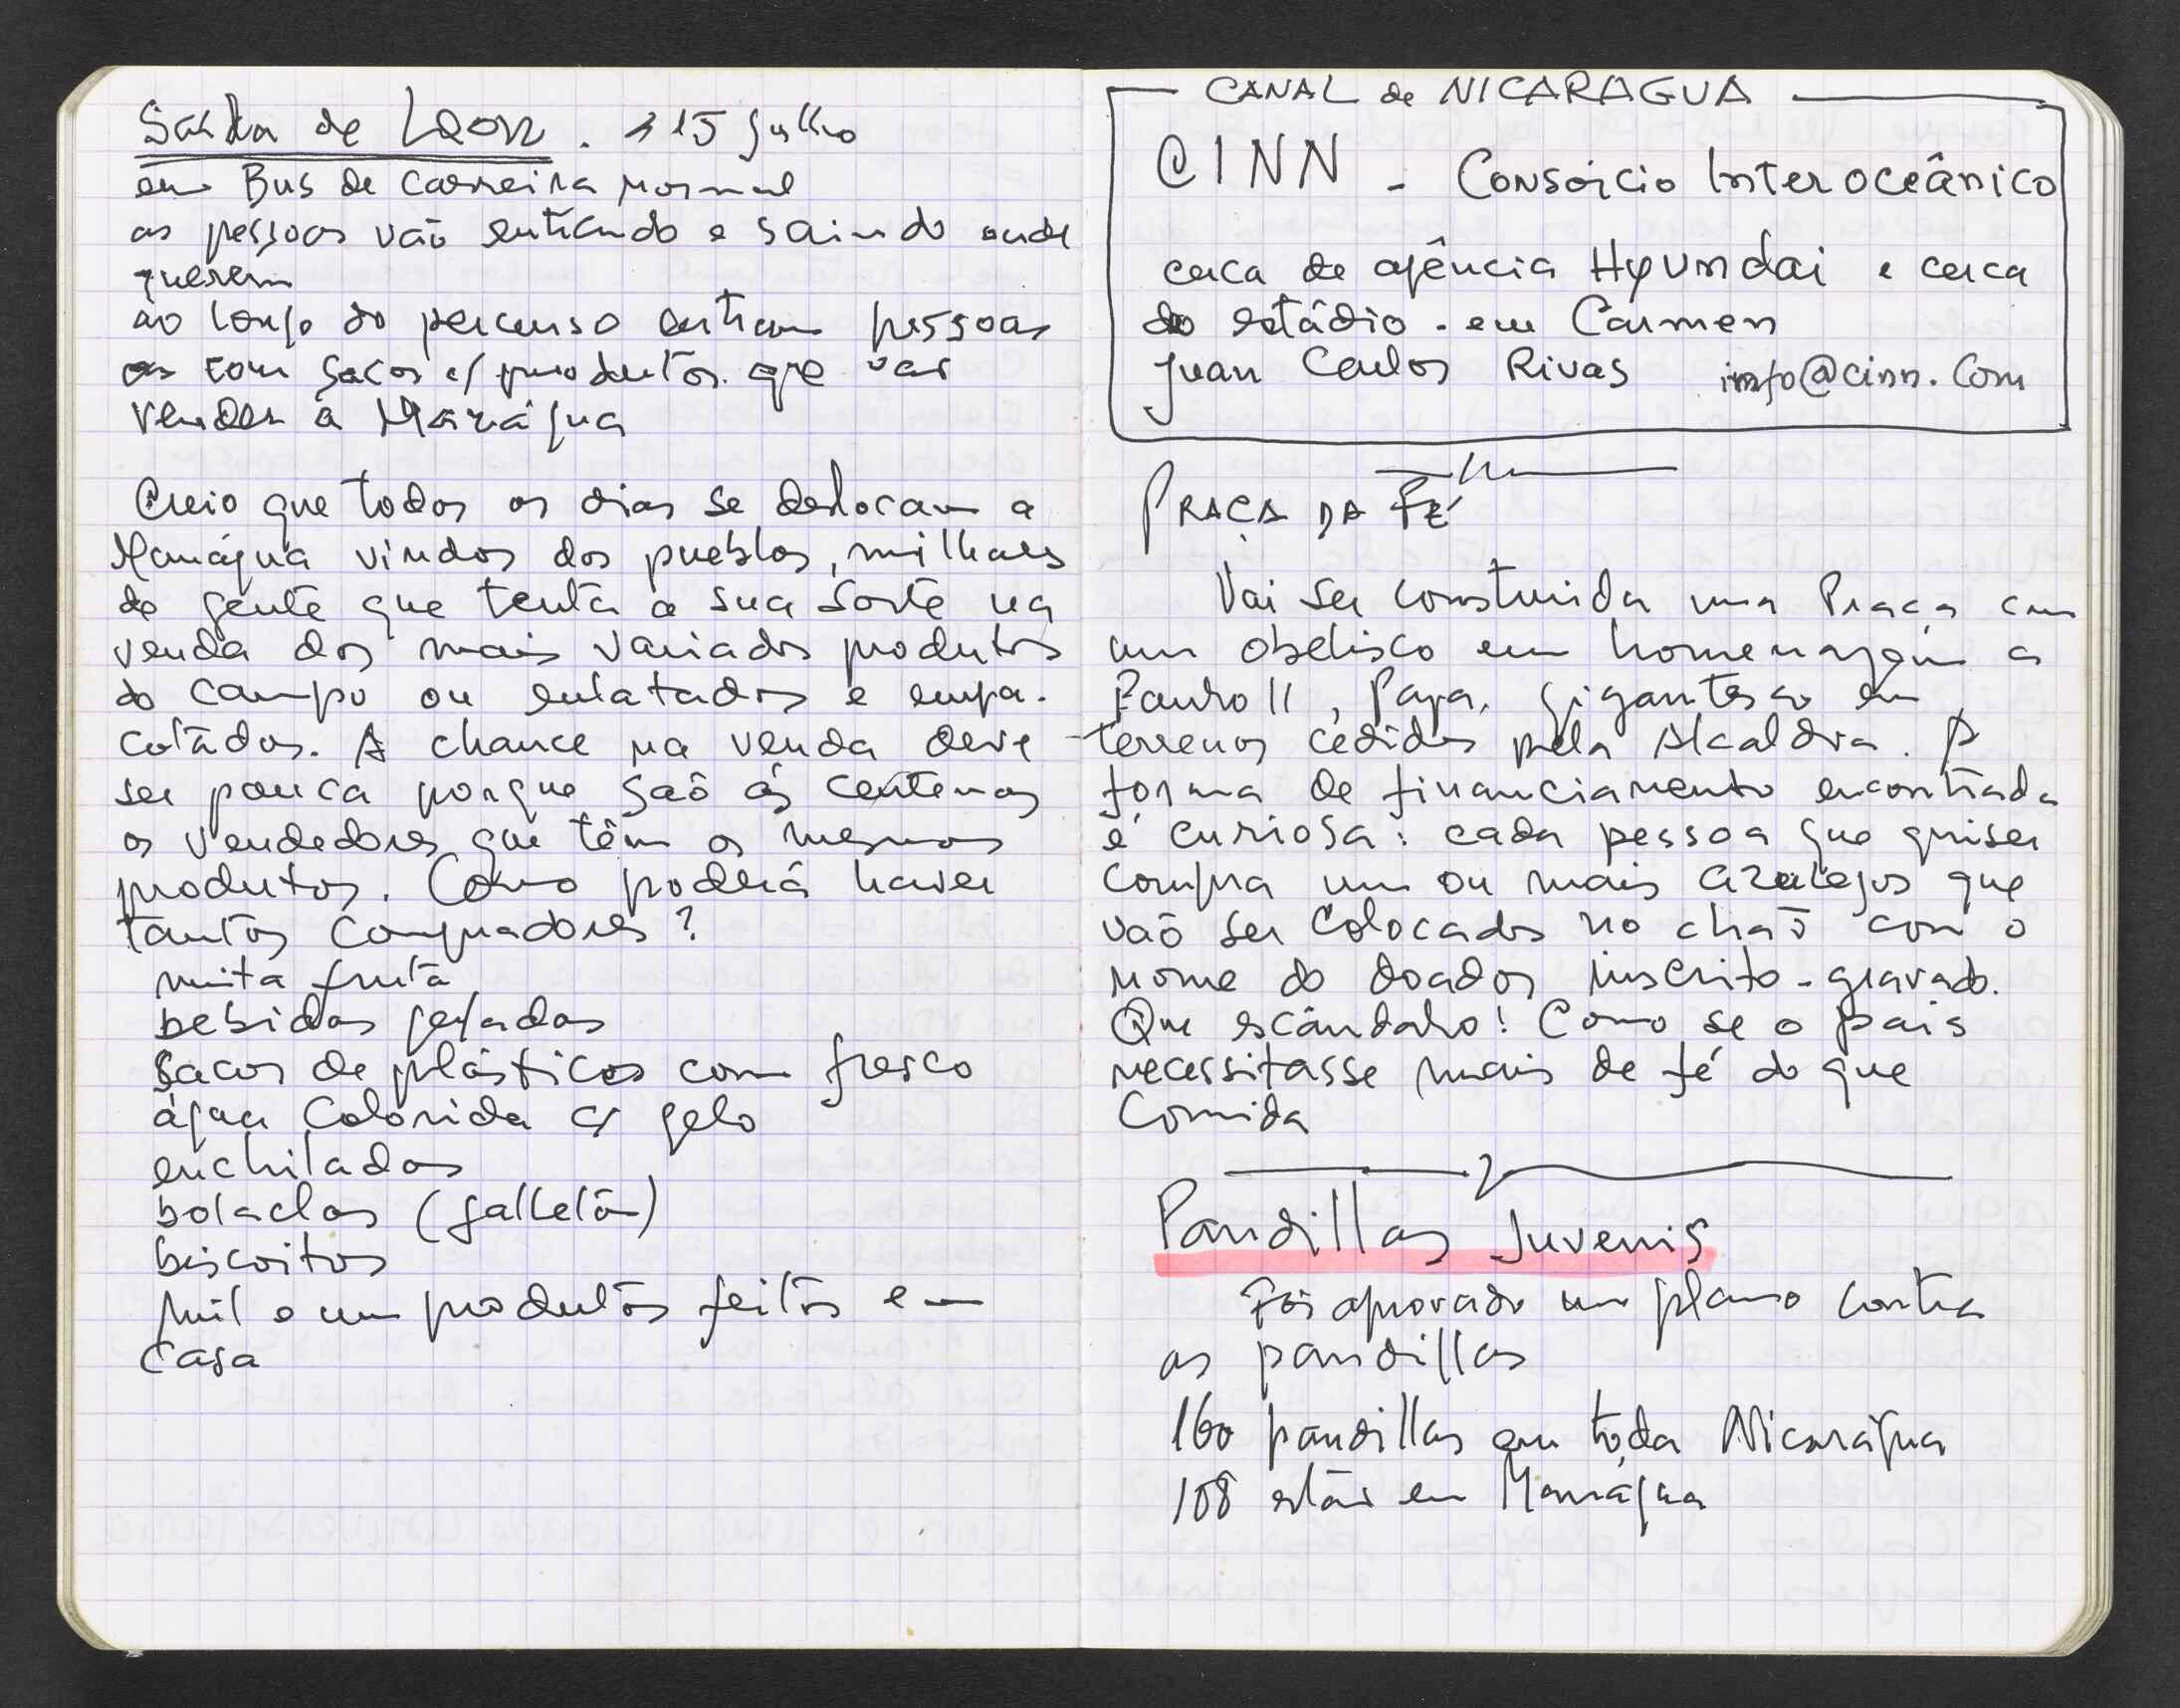 Saída de Leon . 15 Julho
em Bus de carreira normal
as pessoas vão entrando e saindo onde
querem
ao longo do percurso entram pessoas
com sacos c/ produtos que vão
vender a Manágua
Creio que todos os dias se deslocam a
Manágua vindos dos pueblos, milhares
de gente que tenta a sua sorte na
venda dos mais variados produtos
do campo ou enlatados e empa-
cotados. A chance na venda deve
ser pouca porque são ás centenas
os vendedores que têm os mesmos
produtos. Como poderá haver
tantos compradores?
muita fruta
bebidas geladas
sacos de plásticos com fresco
água colorida c/ gelo
enchiladas
bolachas (galletas)
biscoitos
mil e um produtos feitos em
casa
CANAL de NICARAGUA
CINN - Consórcio Interoceânico
cerca de agência Hyundai e cerca
do estádio - em Carmen
Juan Carlos Rivas info@cinn.com
PRAÇA DA FÉ
Vai ser construida uma Praça com
um obelisco em homenagem a
Paulo II, Papa, gigantesco em
terrenos cedidos pela Alcaldia. A
forma de financiamento encontrada
é curiosa: cada pessoa que quiser
compra um ou mais azulejos que
vão ser colocados no chão com o
nome do doador inscrito-gravado.
Que escândalo! Como se o pais
necessitasse mais de fé do que
comida
Pandillas Juvenis
Foi aprovado um plano contra
as pandillas
160 pandillas em toda Nicarágua
108 estão em Manágua